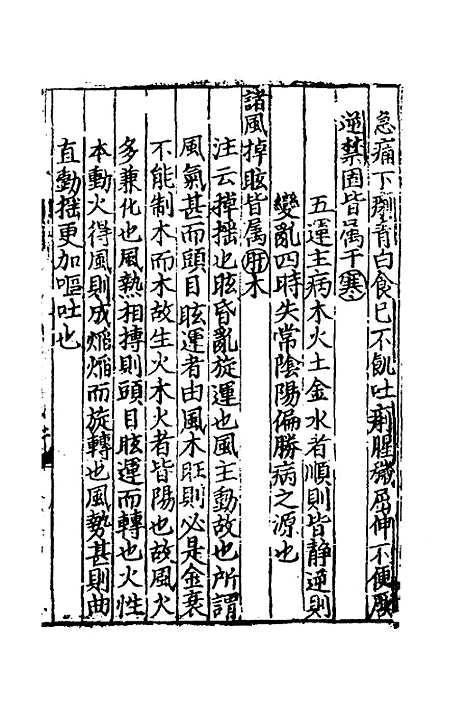 急痛下痢青白食已不飢吐痢腥穢屈伸不便厥
逆禁固皆属于寒
五運主病木火土金水者順則皆静逆則
變亂四時失常陰陽偏勝病之源也
諸風掉眩皆属肝木
注云掉摇也眩昏亂旋運也風主動故也所謂
風氣甚而頭目眩運者由風木旺則必是金衰
不能制木而木故生火木火者皆陽也故風火
多兼化也風熱相搏則頭目眩運而轉也火性
本動火得風則成焰焰而旋轉也風勢甚則曲
直動摇更加嘔吐也